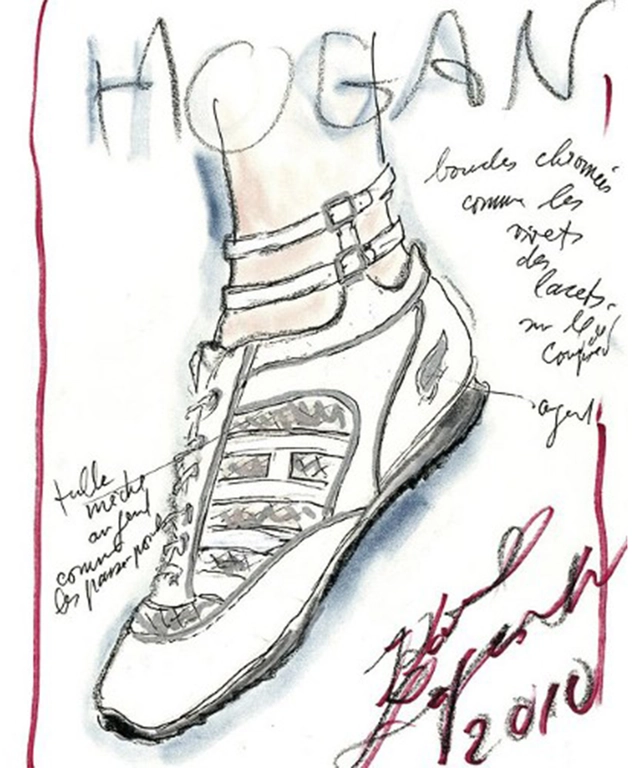 HOGAN
boucles chromées
comme les
rivets
des
lacets.
sur le
argent
tulle
mèche
argent
comme
les passepoils
Karl
Lagerfeld
2010